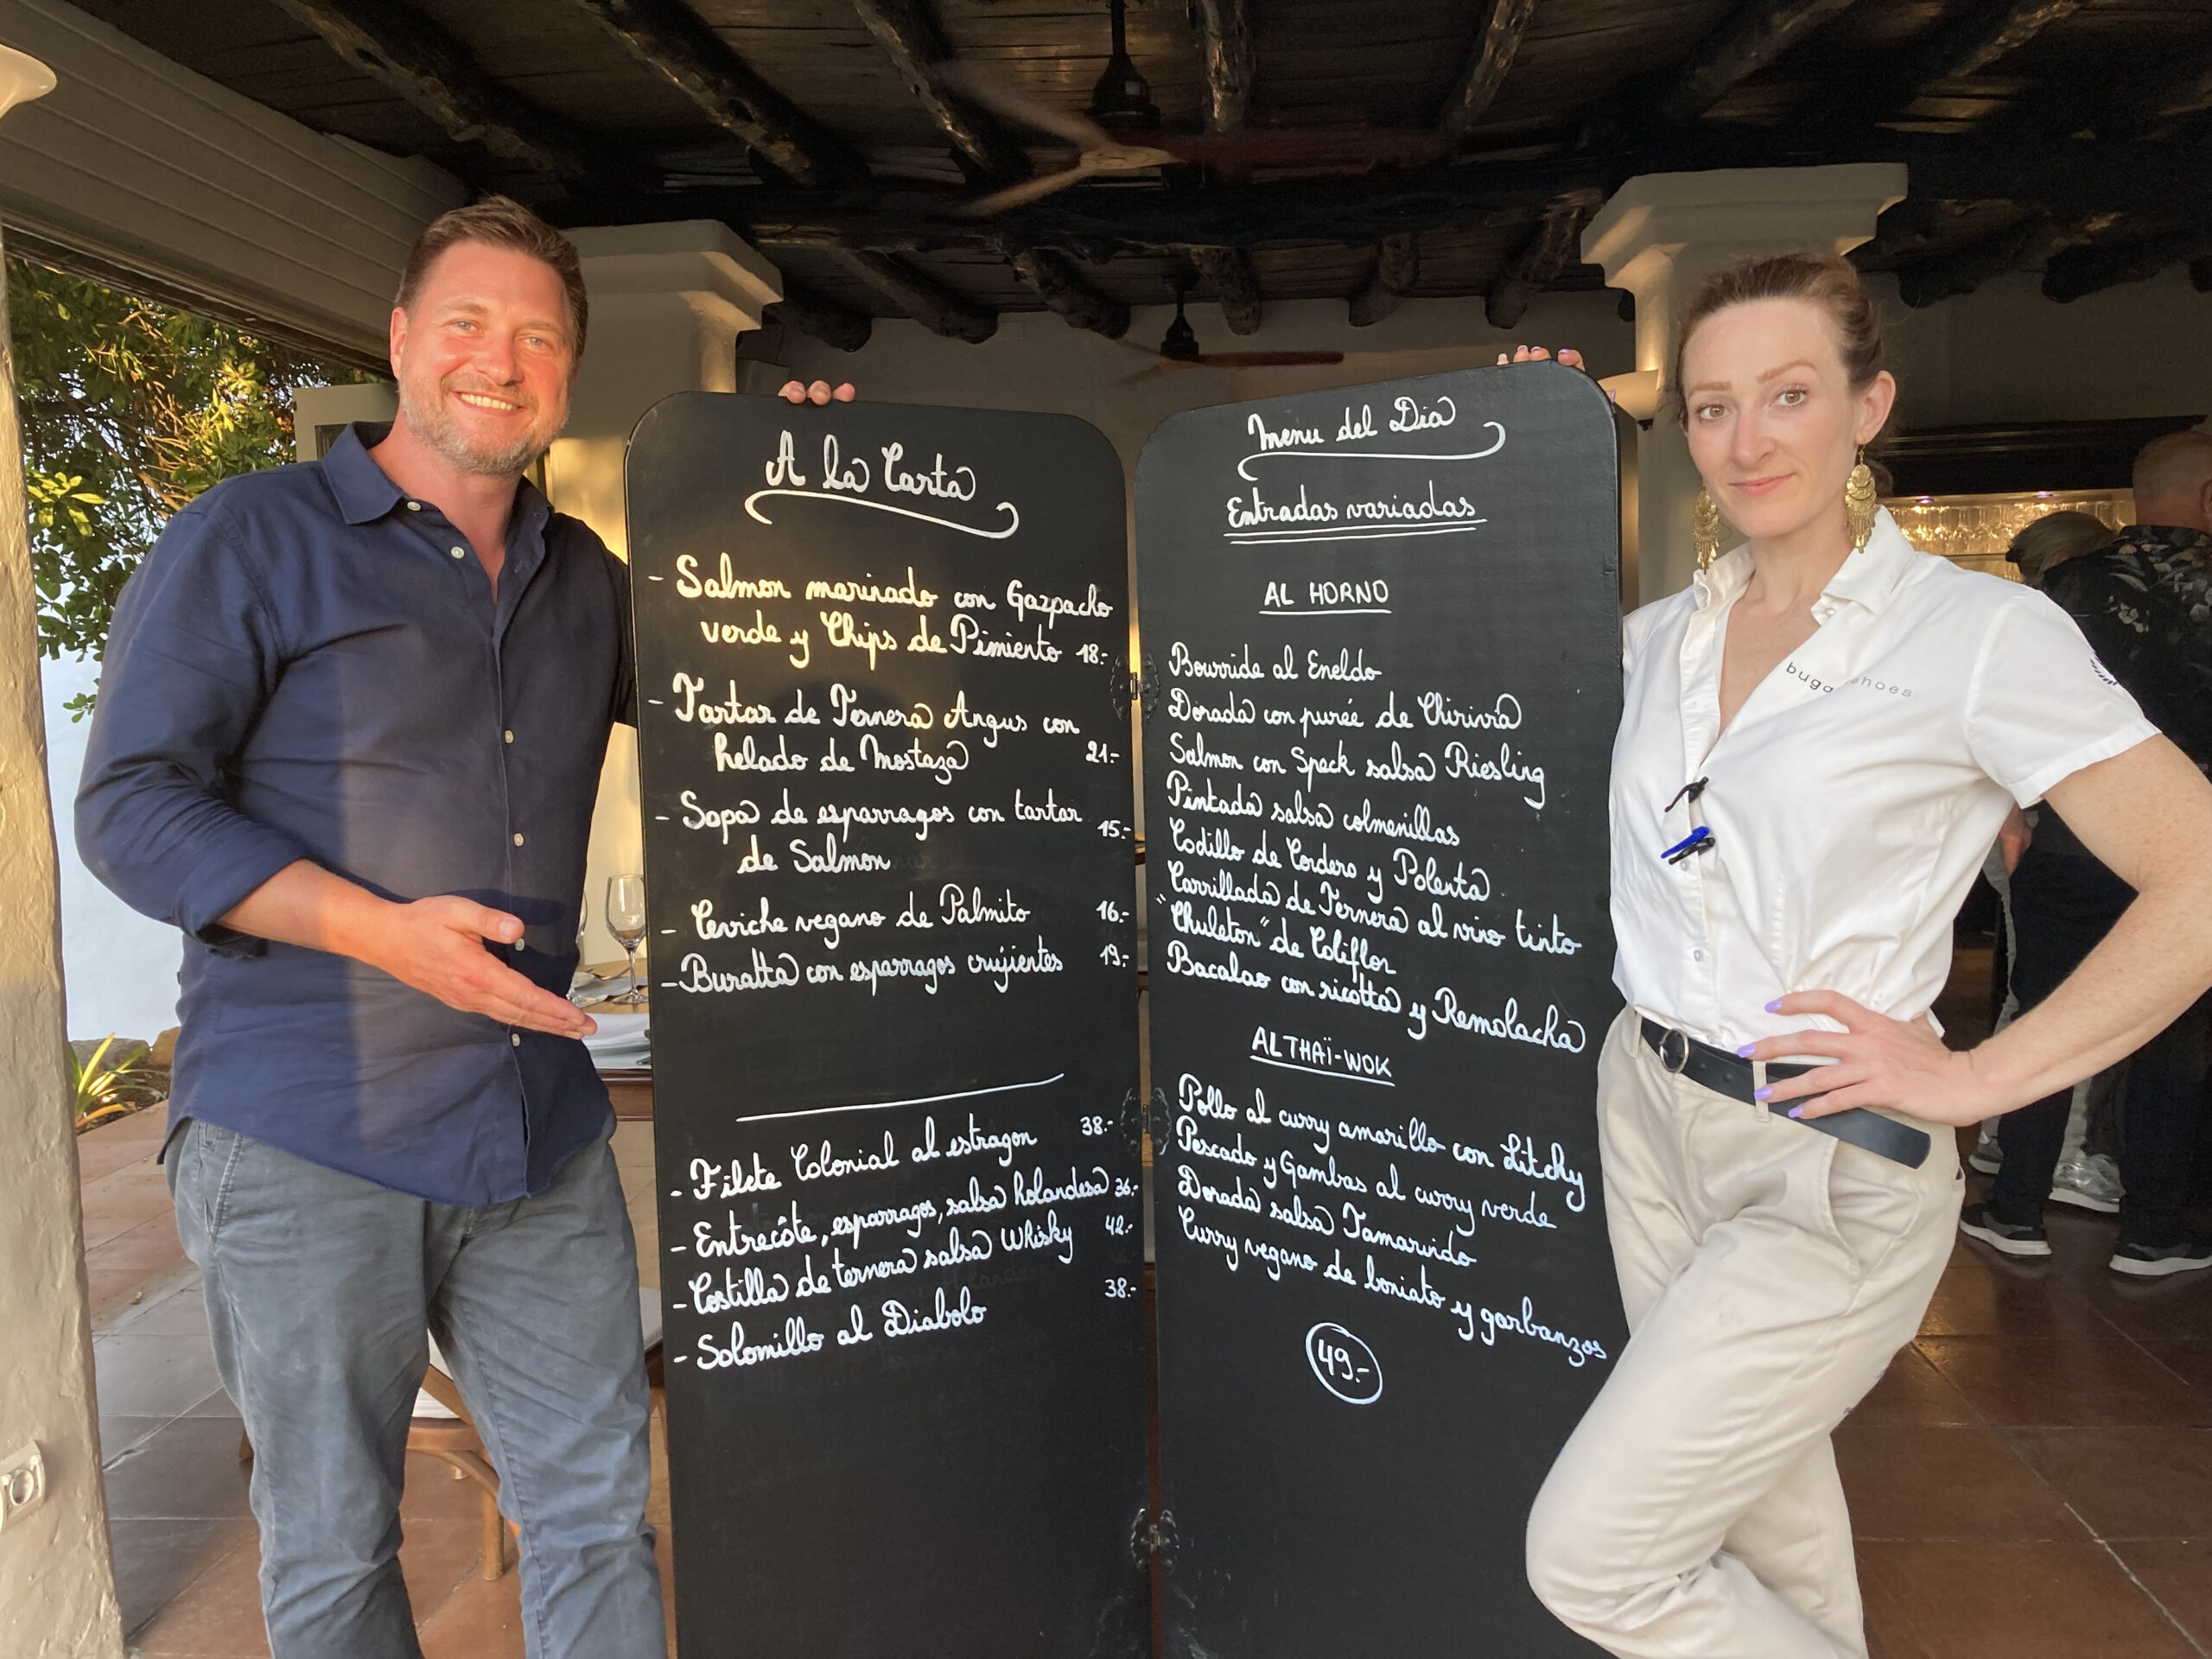 A la Carta
- Salmon marinado con Gazpacho
verde y Chips de Pimiento 18.-
- Tartar de Ternera Angus con
helado de Mostaza 21.-
- Sopa de esparragos con tartar
de Salmon 15.-
- Ceviche vegano de Palmito 16.-
- Buratta con esparragos crujientes 19.-
- Filete Colonial al estragon 38.-
- Entrecôte, esparragos, salsa holandesa 36.-
- Costilla de ternera salsa Whisky 42.-
- Solomillo al Diabolo 38.-
Menu del Dia
Entradas variadas
AL HORNO
Bourride al Eneldo
Dorada con purée de Chirivia
Salmon con Speck salsa Riesling
Pintada salsa colmenillas
Codillo de Cordero y Polenta
Carrillada de Ternera al vino tinto
"Chuleton" de Coliflor
Bacalao con ricotta y Remolacha
AL THAÏ-WOK
Pollo al curry amarillo con Litchy
Pescado y Gambas al curry verde
Dorada salsa Tamarindo
Curry vegano de boniato y garbanzos
49.-